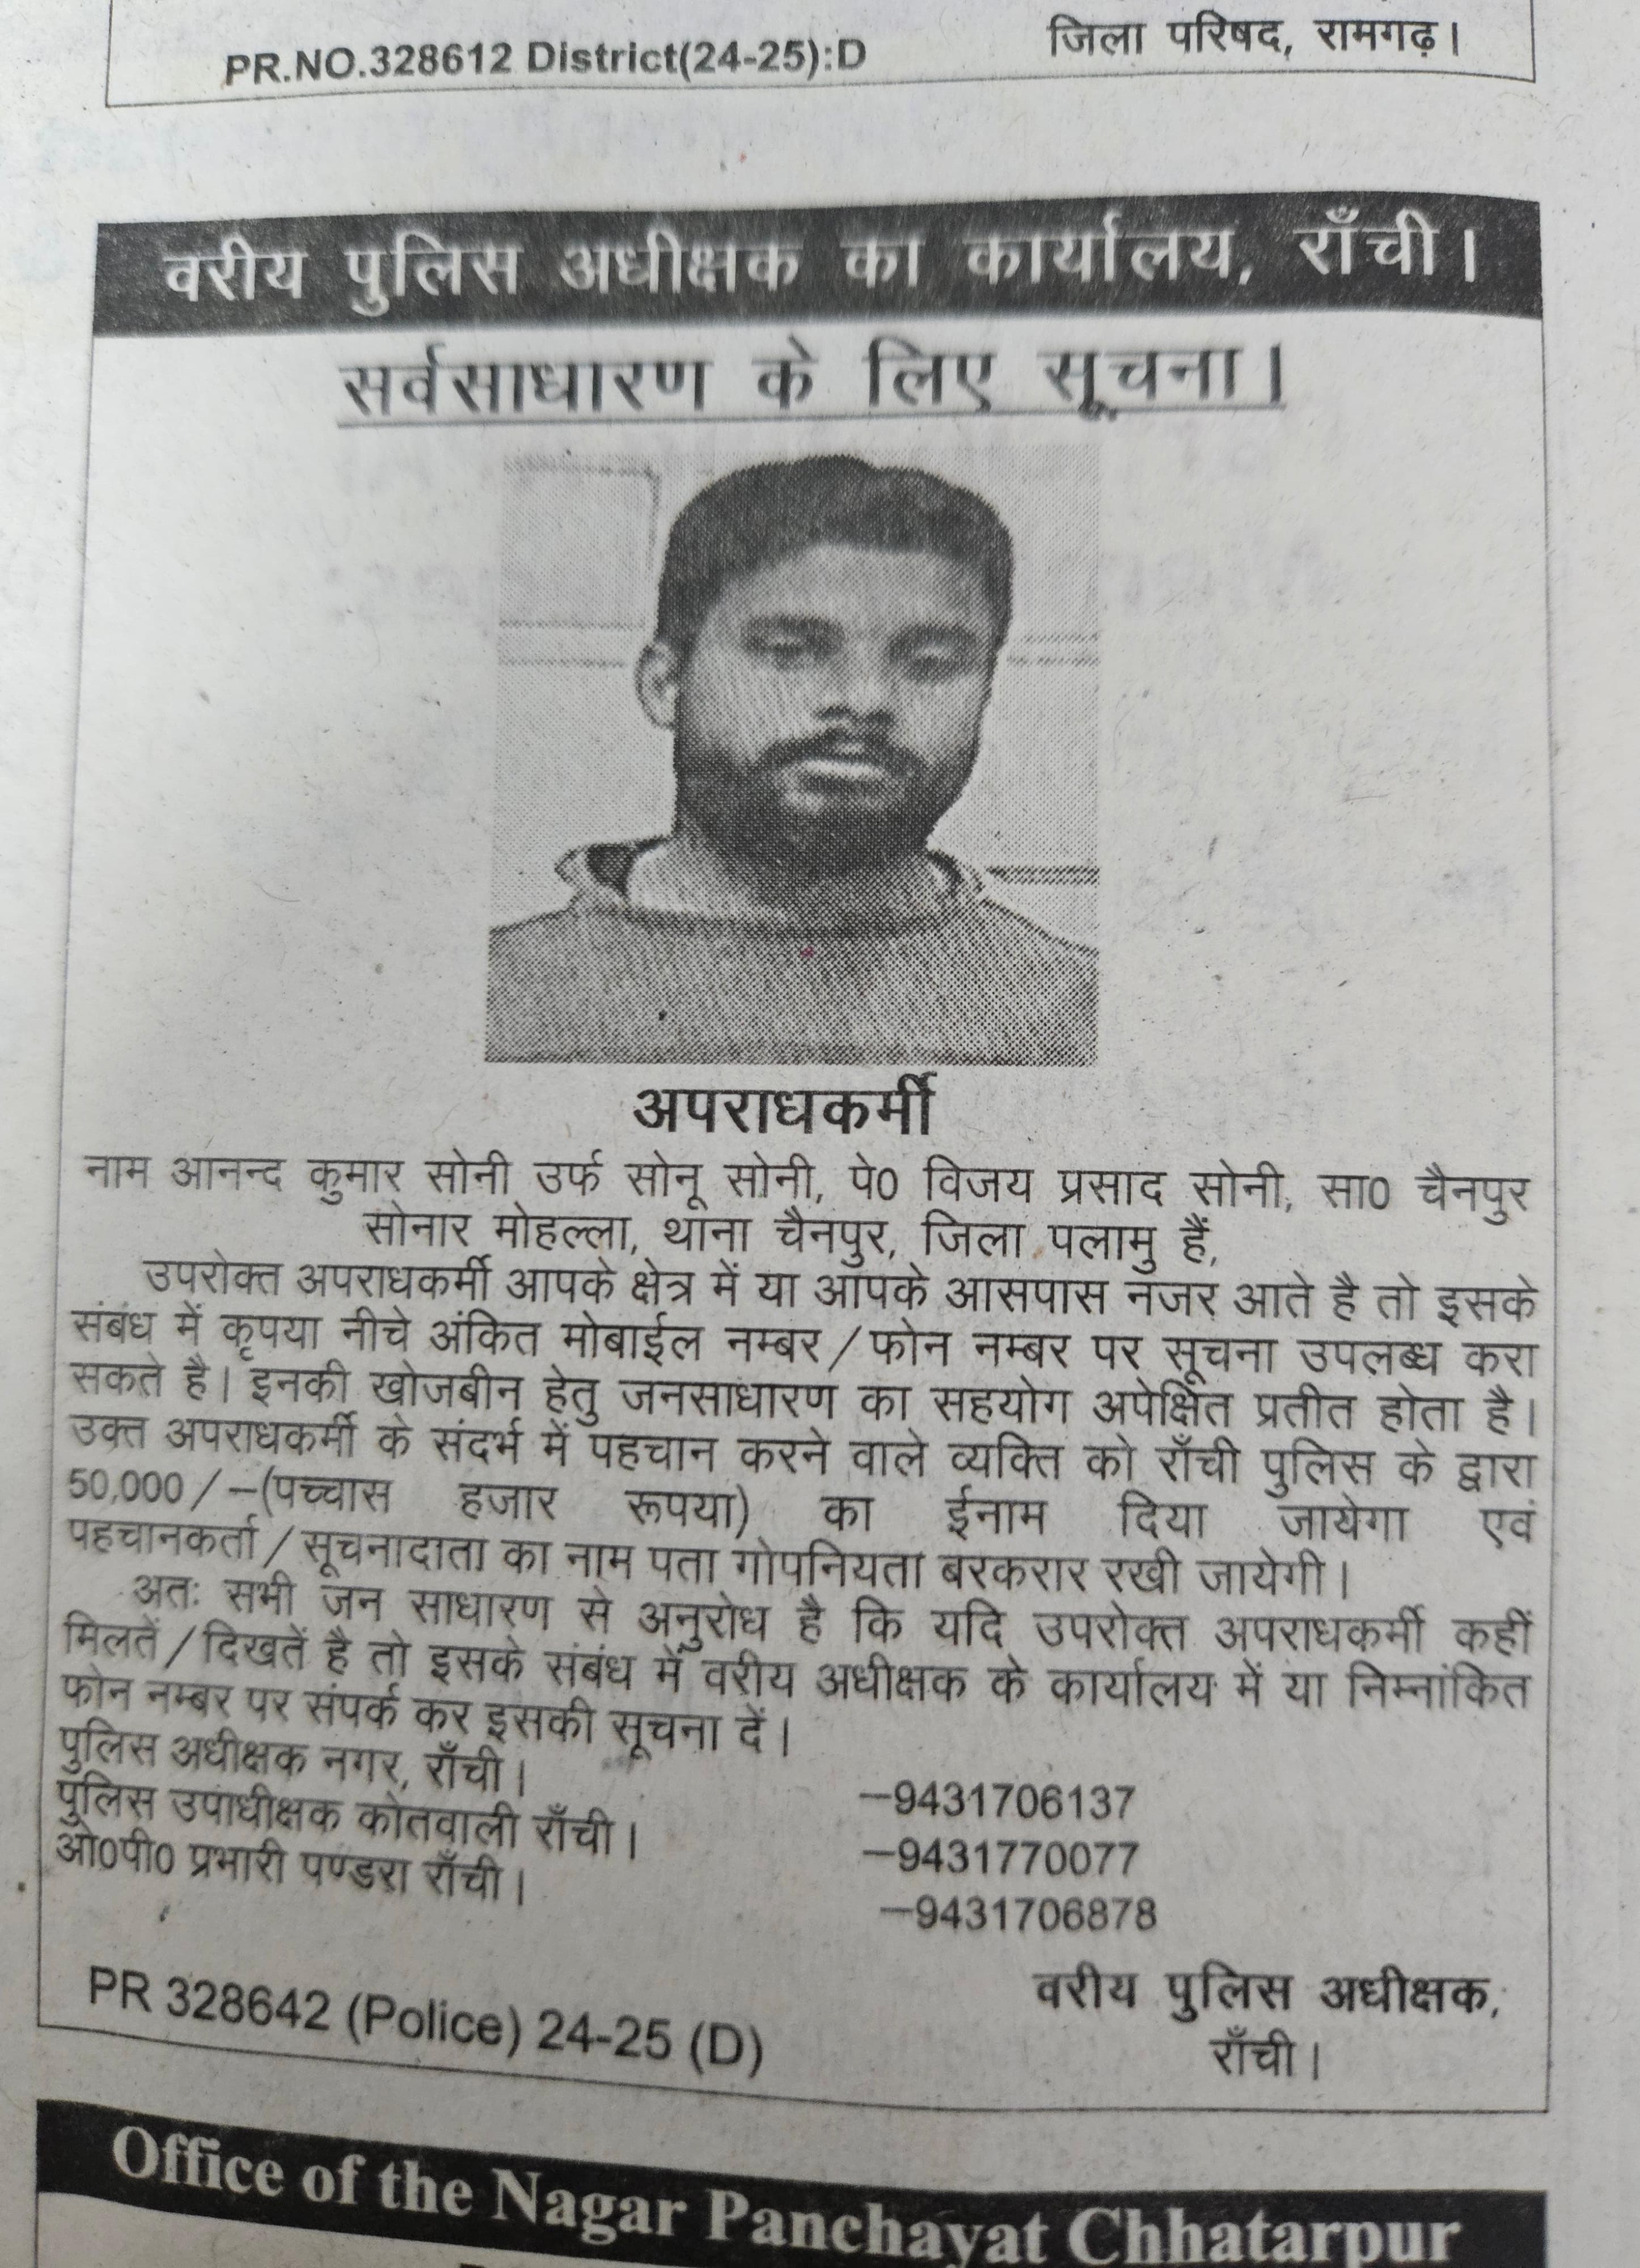 PR.NO.328612 District(24-25):D
जिला परिषद, रामगढ़।
वरीय पुलिस अधीक्षक का कार्यालय, राँची।
सर्वसाधारण के लिए सूचना।
अपराधकर्मी
नाम आनन्द कुमार सोनी उर्फ सोनू सोनी, पे0 विजय प्रसाद सोनी, सा0 चैनपुर
सोनार मोहल्ला, थाना चैनपुर, जिला पलामु हैं,
उपरोक्त अपराधकर्मी आपके क्षेत्र में या आपके आसपास नजर आते है तो इसके
संबंध में कृपया नीचे अंकित मोबाईल नम्बर/फोन नम्बर पर सूचना उपलब्ध करा
सकते है। इनकी खोजबीन हेतु जनसाधारण का सहयोग अपेक्षित प्रतीत होता है।
उक्त अपराधकर्मी के संदर्भ में पहचान करने वाले व्यक्ति को राँची पुलिस के द्वारा
50,000/–(पच्चास हजार रूपया) का ईनाम दिया जायेगा एवं
पहचानकर्ता/सूचनादाता का नाम पता गोपनियता बरकरार रखी जायेगी।
अतः सभी जन साधारण से अनुरोध है कि यदि उपरोक्त अपराधकर्मी कहीं
मिलतें/दिखतें है तो इसके संबंध में वरीय अधीक्षक के कार्यालय में या निम्नांकित
फोन नम्बर पर संपर्क कर इसकी सूचना दें।
पुलिस अधीक्षक नगर, राँची। –9431706137
पुलिस उपाधीक्षक कोतवाली राँची। –9431770077
ओ0पी0 प्रभारी पण्डरा राँची। –9431706878
वरीय पुलिस अधीक्षक,
राँची।
PR 328642 (Police) 24-25 (D)
Office of the Nagar Panchayat Chhatarpur